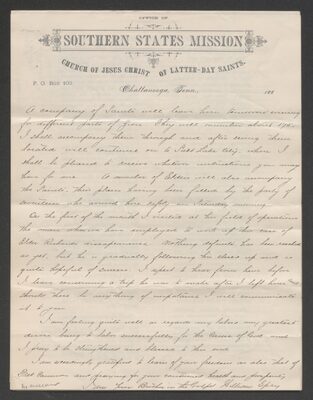 OFFICE OF
SOUTHERN STATES MISSION
CHURCH OF JESUS CHRIST OF LATTER-DAY SAINTS.
P. O. Box 103.
Chattanooga, Tenn., 188
A company of Saints will leave here tomorrow evening
for different parts of They will number about
I shall accompany them through and after seeing them
located will continue on to Salt Lake City where I
shall be pleased to receive whatever instructions you may
have for me. A number of Elders will also accompany
the Saints, their places having been filled by the party of
seventeen who arrived here safely on Thursday morning.
On the first of the month I visited at his field of operations
the man whom I have employed to work up the case of
Elder Richards disappearance. Nothing definite has been reached
as yet, but he is gradually following his clues up and is
quite hopeful of success. I expect to hear from him before
I leave concerning a trip he was to make after I left him and
should there be anything of importance I will communicate
it to you.
I am feeling quite well as regards my labors my greatest
desire being to labor successfully for the cause of God and
I pray to be strengthened and blessed to this end.
I am exceedingly gratified to learn of your freedom as also that of
Prest Cannon and praying for your continued health and prosperity
I am Your Brother in the Gospel William Spry